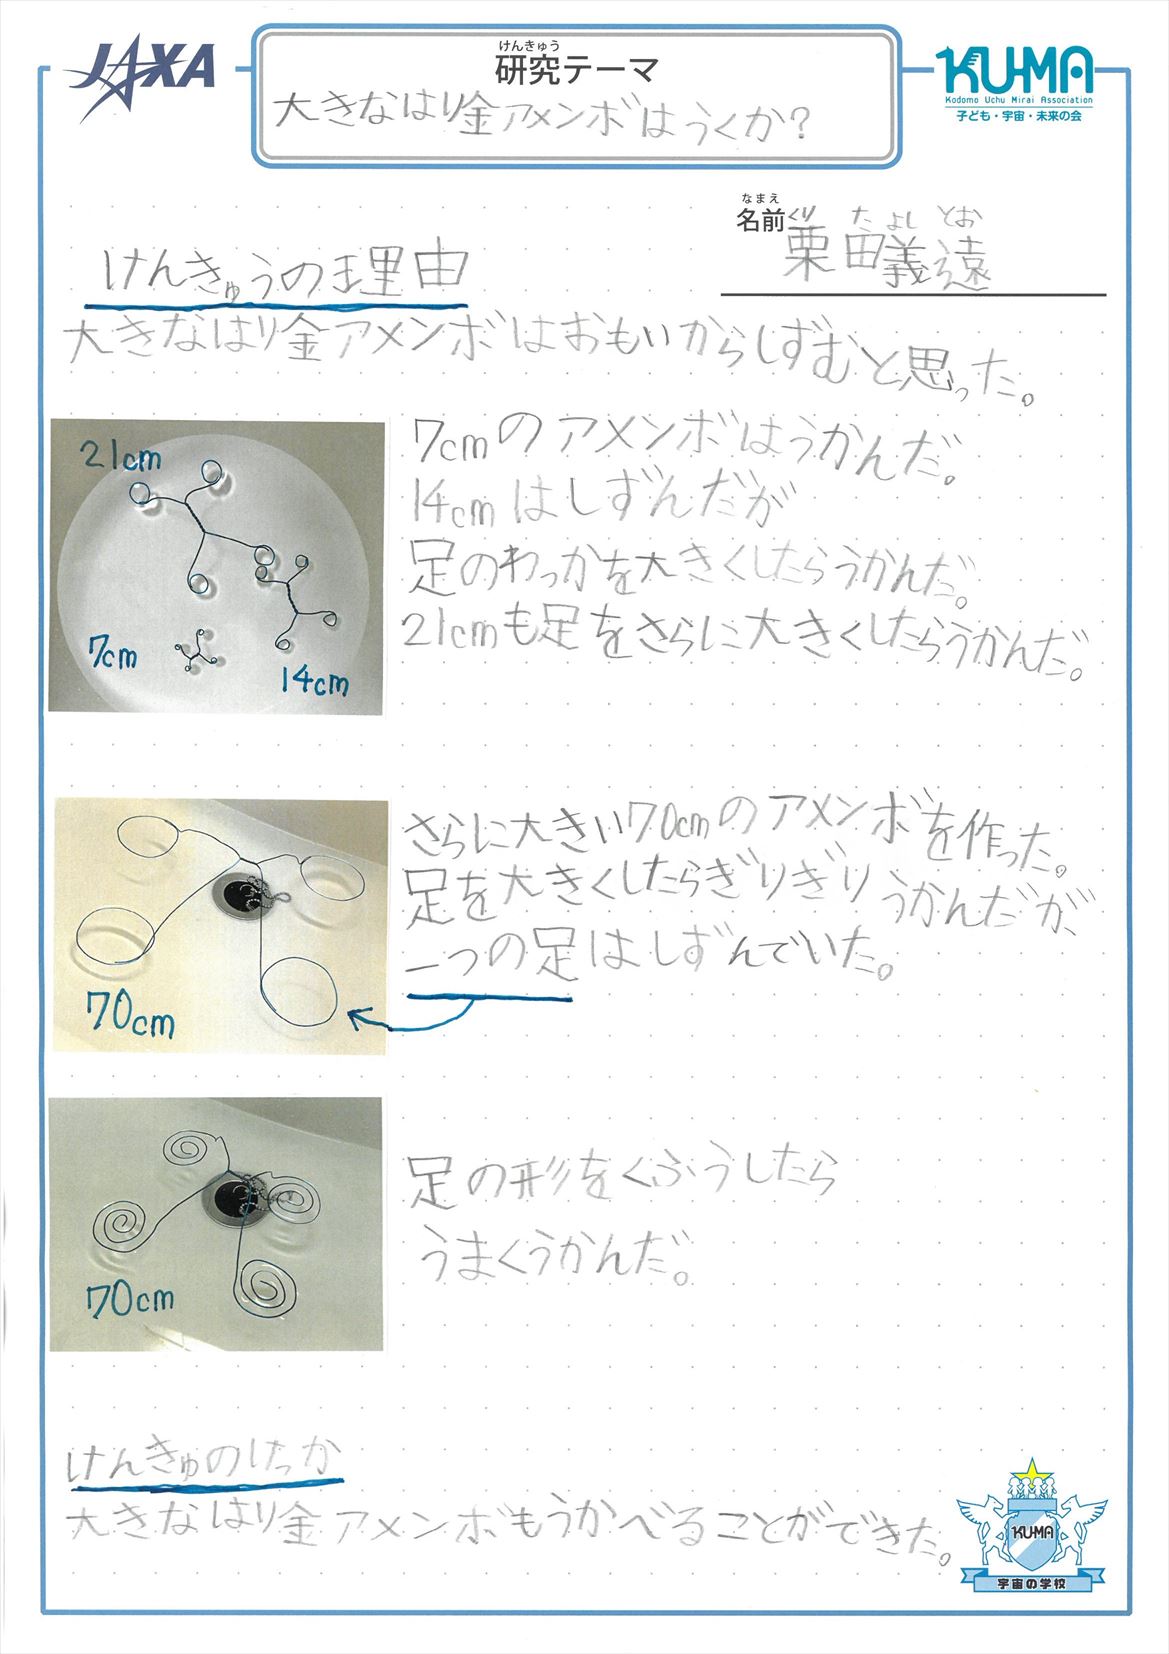 JAXA
けんきゅう
研究テーマ
大きなはり金アメンボはうくか?
KU-MA
Kodomo Uchu Mirai Association
子ども・宇宙・未来の会
なまえ
名前
くり た よし とお
栗田義遠
けんきゅうの理由
大きなはり金アメンボはおもいからしずむと思った。
21cm
7cm
14cm
7cmのアメンボはうかんだ。
14cmはしずんだが
足のわっかを大きくしたらうかんだ。
21cmも足をさらに大きくしたらうかんだ。
70cm
さらに大きい70cmのアメンボを作った。
足を大きくしたらぎりぎりうかんだが、
一つの足はしずんでいた。
70cm
足の形をくふうしたら
うまくうかんだ。
けんきゅのけっか
大きなはり金アメンボもうかべることができた。
KU-MA
宇宙の学校